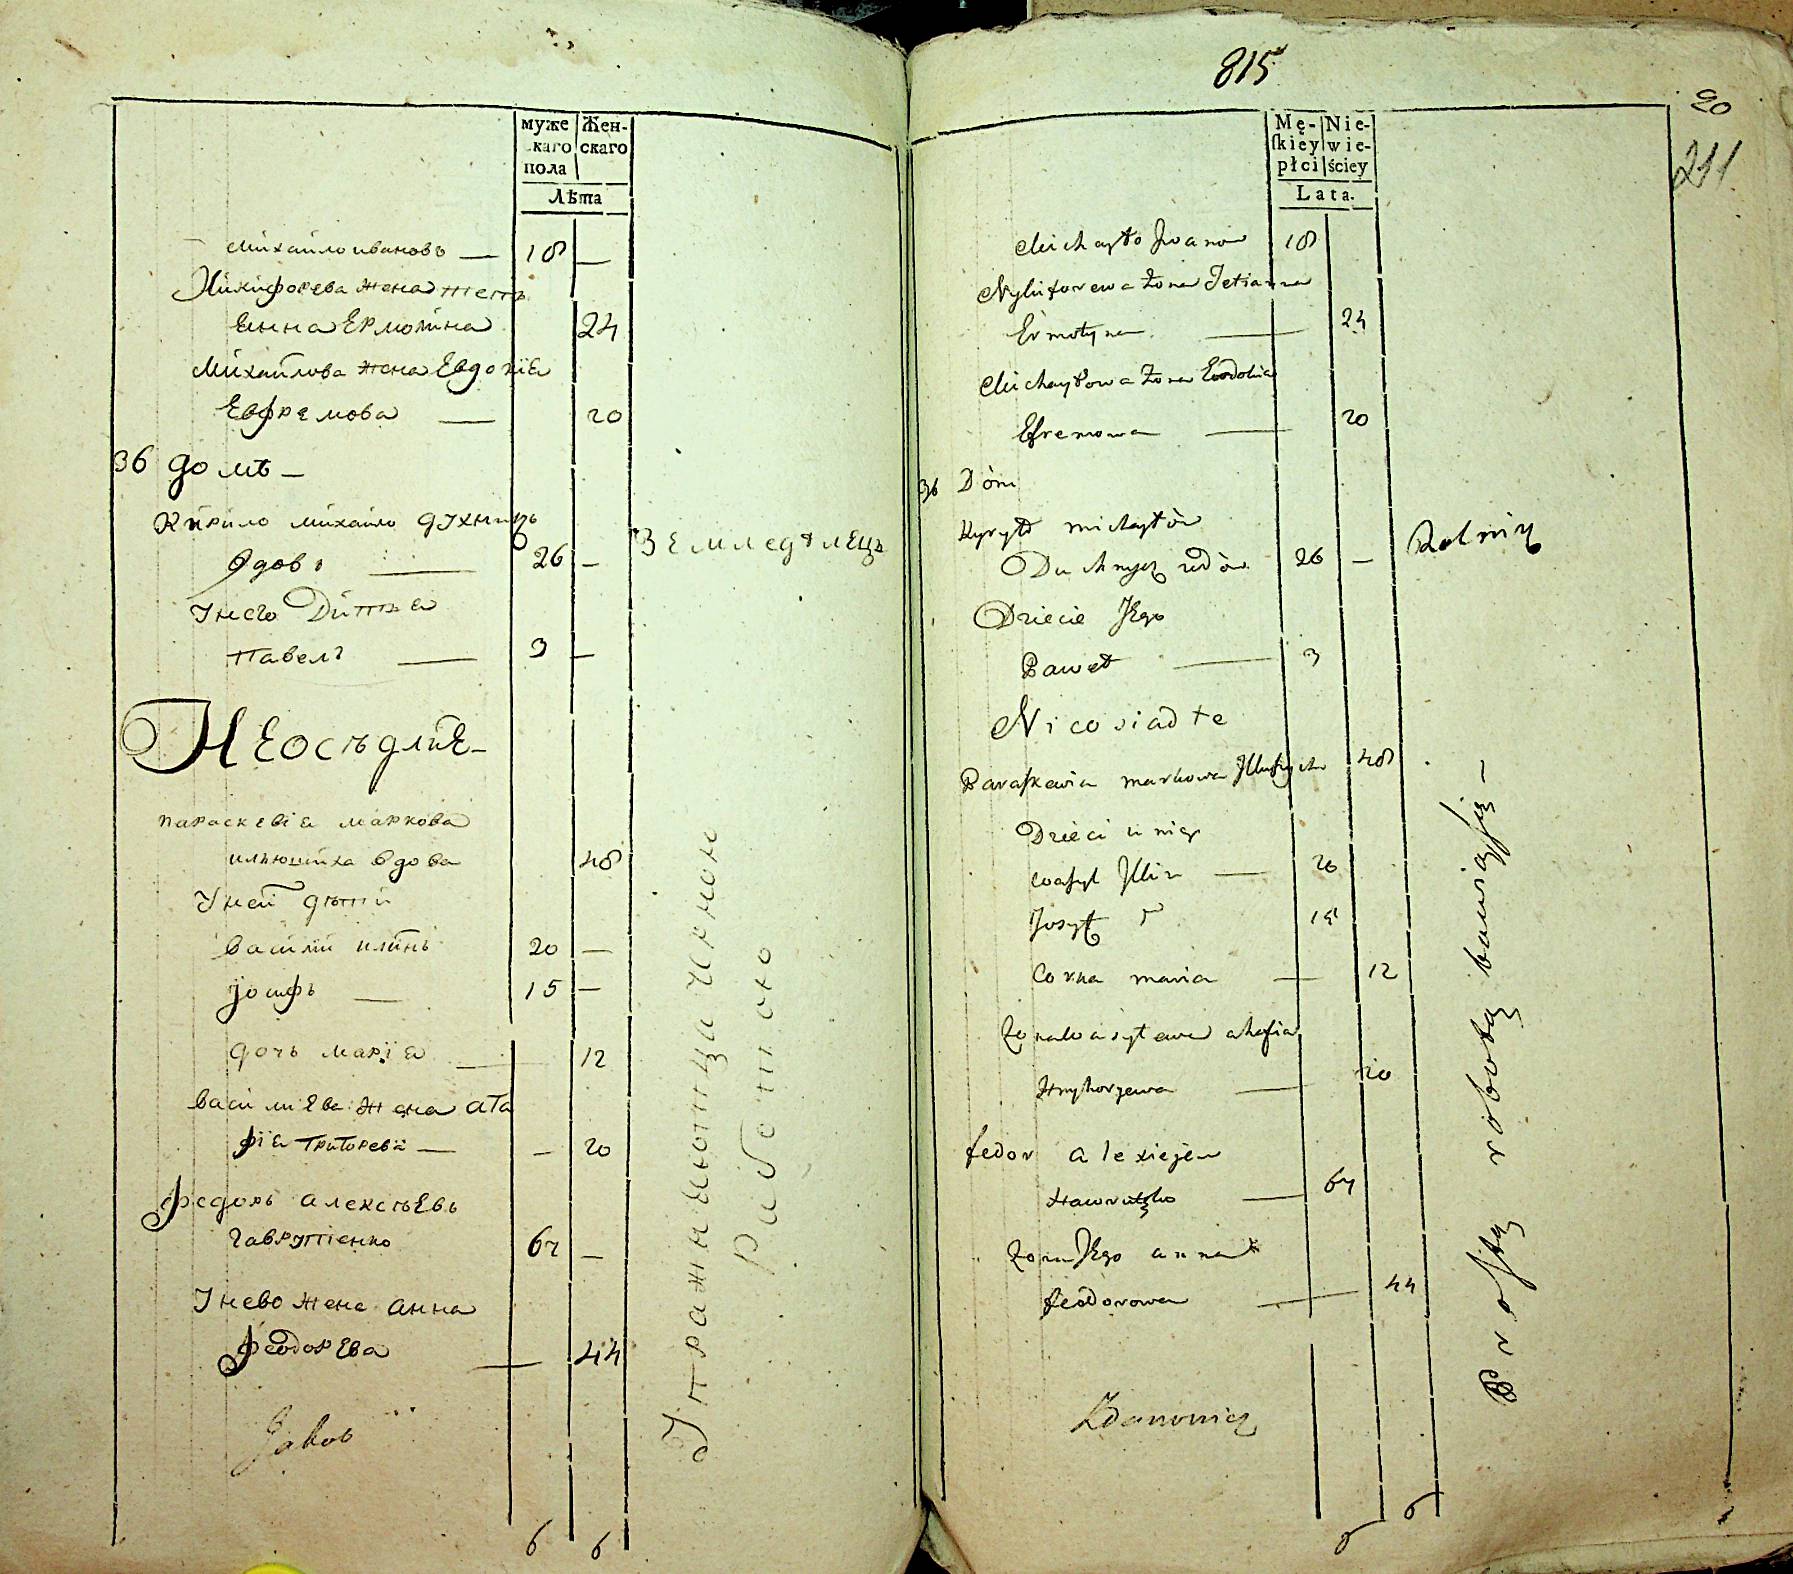 муже Жен-
скаго скаго
пола
Лѣта
Михайло ивановъ — 18 —
Никифорева жена тетъ
Еянна Ермолина 24
Михайлова жена Евдокïя
Ефремова — 20
36 домъ —
Кирило михайло духничъ
вдовъ — 26 — Земледѣлецъ
Унего Дитя
Павелъ — 3 —
Неоседлïе —
параскевïя маркова
ильюшиха вдова 48
Уней дѣти
василïй илïнъ 20 —
Иосифъ — 15 —
дочь марïя — 12
василиева жена ага
фïя григорева — — 20
федоръ алексѣевъ
гаврутенко 64 —
Унево жена анна
феодорева — 44
Упражняютца черною
работою
Jakob
6 6
815
20
211
Mę- Nie-
ſkiey wie-
płci ściey
Lata.
Michayło Jwanow 18
Nykiforewa żona Tetianna
Ermołyna — 24
Michayłowa żona Ewdokia
Efremowa — 20
36 Dóm
Kyryło michayłów
Duchnycz wdów 26 — Rolnik
Dziecie Jego
Paweł — 3
Nieosiadłe
Paraſkewia markowa Jlluszycha 48
Dzieci u niey
waſyl Jllin — 20
Josyf 15
Corka maria — 12
żona wasylewa ahafia
Hryhorjewa — 20
fedor alexiejew
Hawrutenko — 64
żona Jego anna
feodorowa — 44
Proſtą robotą bawią ſię —
Zdanowicz
6 6